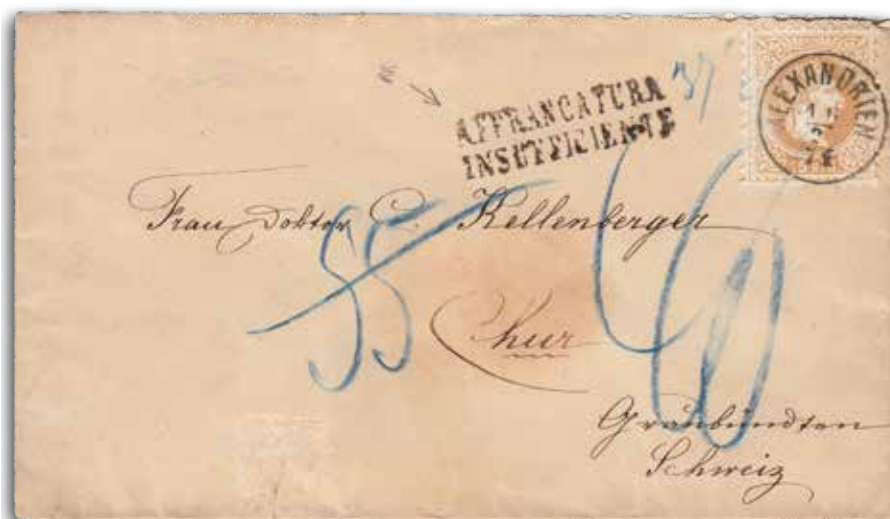 AFFRANCATURA
INSUFFICIENTE
ALEXANDRIEN
Frau Doktor C. Kellenberger
55
Chur
Graubündten
Schweiz